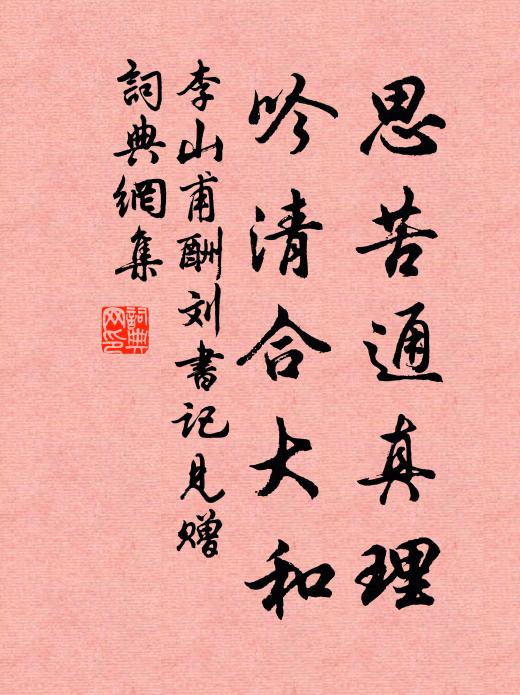 思苦通真理
吟清合大和
李山甫酬刘書记见赠
詞典網集
詞典网印